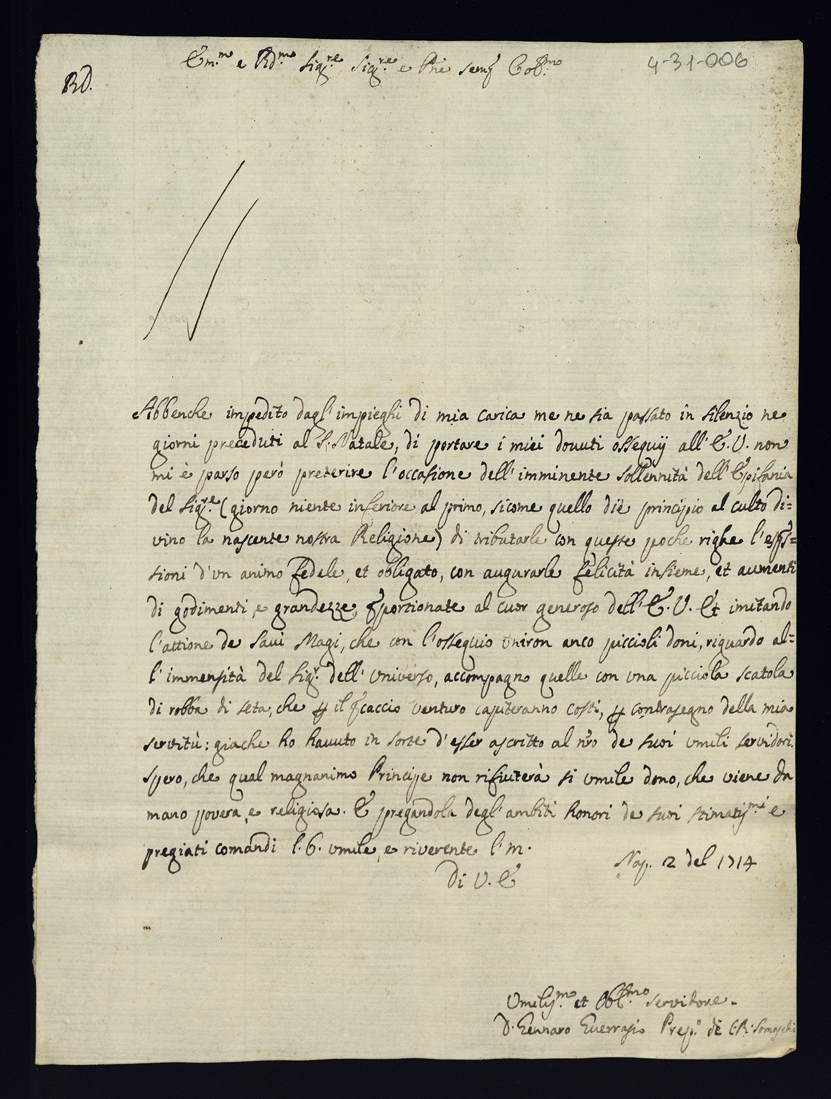 Em.mo e Rd.mo Sig.re Sig.re e Pñe semp Col.mo
4-31-006
Rd.
Abbenche impedito dagl' impieghi di mia carica me ne sia passato in silenzio ne
giorni preceduti al S. Natale, di portare i miei douuti ossequij all' E. V. non
mi è parso però preterire l'occasione dell' imminente sollennità dell' Epifania
del Sig.re (giorno niente inferiore al primo, sicome quello diè principio al culto di=
vino la nascente nostra Religione) di tributarle con queste poche righe l'esp̃s=
sioni d'vn animo fedele, et obligato, con augurarle felicità insieme, et aumenti
di godimenti, e grandezze, ꝓporzionate al cuor generoso dell' E. V. Et imitando
l'attione de Savi Magi, che con l'ossequio vniron anco piccioli doni, riguardo al=
l' immensità del Sig.r dell' Vniverso, accompagno quelle con vna picciola scatola
di robba di seta, che ꝑ il ꝓcaccio venturo capiteranno costì, ꝑ contrasegno della mia
servitù: giache ho hauuto in sorte d'esser ascritto al nr̃o de suoi vmili servidori.
Spero, che qual magnanimo Principe non rifiuterà si vmile dono, che viene da
mano povera, e religiosa. E pregandola degl' ambiti honori de suoi stimatis.mi e
pregiati comandi l. b. vmile, e riverente l. m.
Di V. E
Nap. 2 del 1714
Vmilis.mo et Obl.mo servitore
D. Gennaro Guerrasio Prep.o de C. R. Somaschi